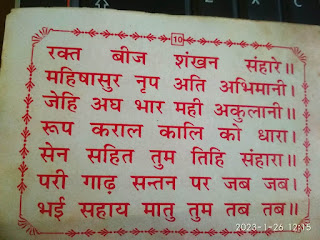 10
रक्त बीज शंखन संहारे॥
महिषासुर नृप अति अभिमानी।
जेहि अघ भार मही अकुलानी॥
रूप कराल कालि को धारा।
सेन सहित तुम तिहि संहारा॥
परी गाढ़ सन्तन पर जब जब।
भई सहाय मातु तुम तब तब॥
2023-1-26 12:15